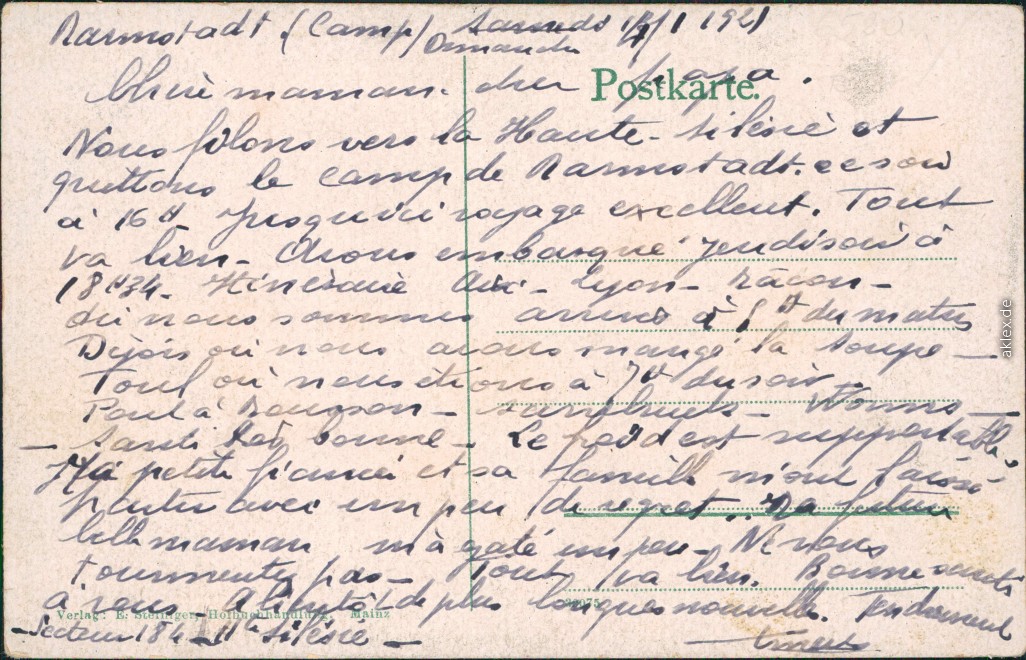 Darmstadt (Camp) Samedi 1921
Dimanche
Postkarte.
Chère maman. cher papa.
Nous filons vers la Haute-Silésie et
quittons le camp de Darmstadt. ce soir
à 16H jusqu'ici voyage excellent. Tout
va bien - Avons embarqué jeudi soir à
18H34. Itinéraire Aix - Lyon - Mâcon -
où nous sommes arrivés à 8H du matin
Dijon où nous avons mangé la soupe -
Toul où nous étions à 7H du soir
Pont à Mousson - Sarrebruck - Worms -
- Santé très bonne - Le froid est supportable.
Ma petite fiancée et sa famille m'ont laissé
partir avec un peu de regret.. Ma future
belle maman m'a gaté un peu - Ne vous
tourmentez pas - Tout va bien. Bonne santé
à vous - A bientôt de plus longues nouvelles. Tendrement
Verlag: E. Steffinger, Hofbuchhandlung, Mainz
- Secteur 184 - Hte Silésie -
aklex.de